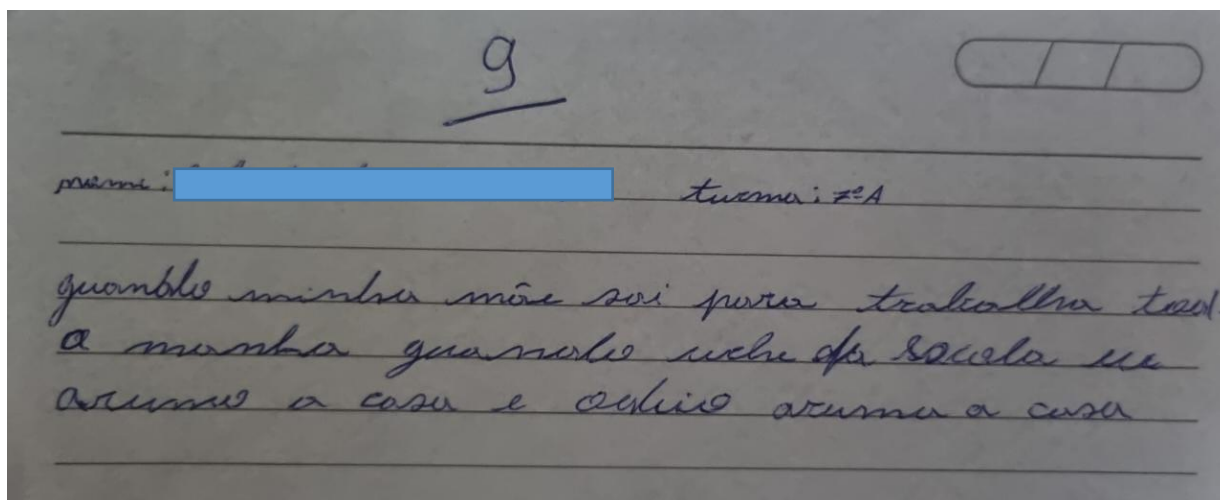 9
nome: turma: 7º A
quando minha mãe sai para trabalha toda
a manha quando da Escola eu
arumo a casa e odeio aruma a casa